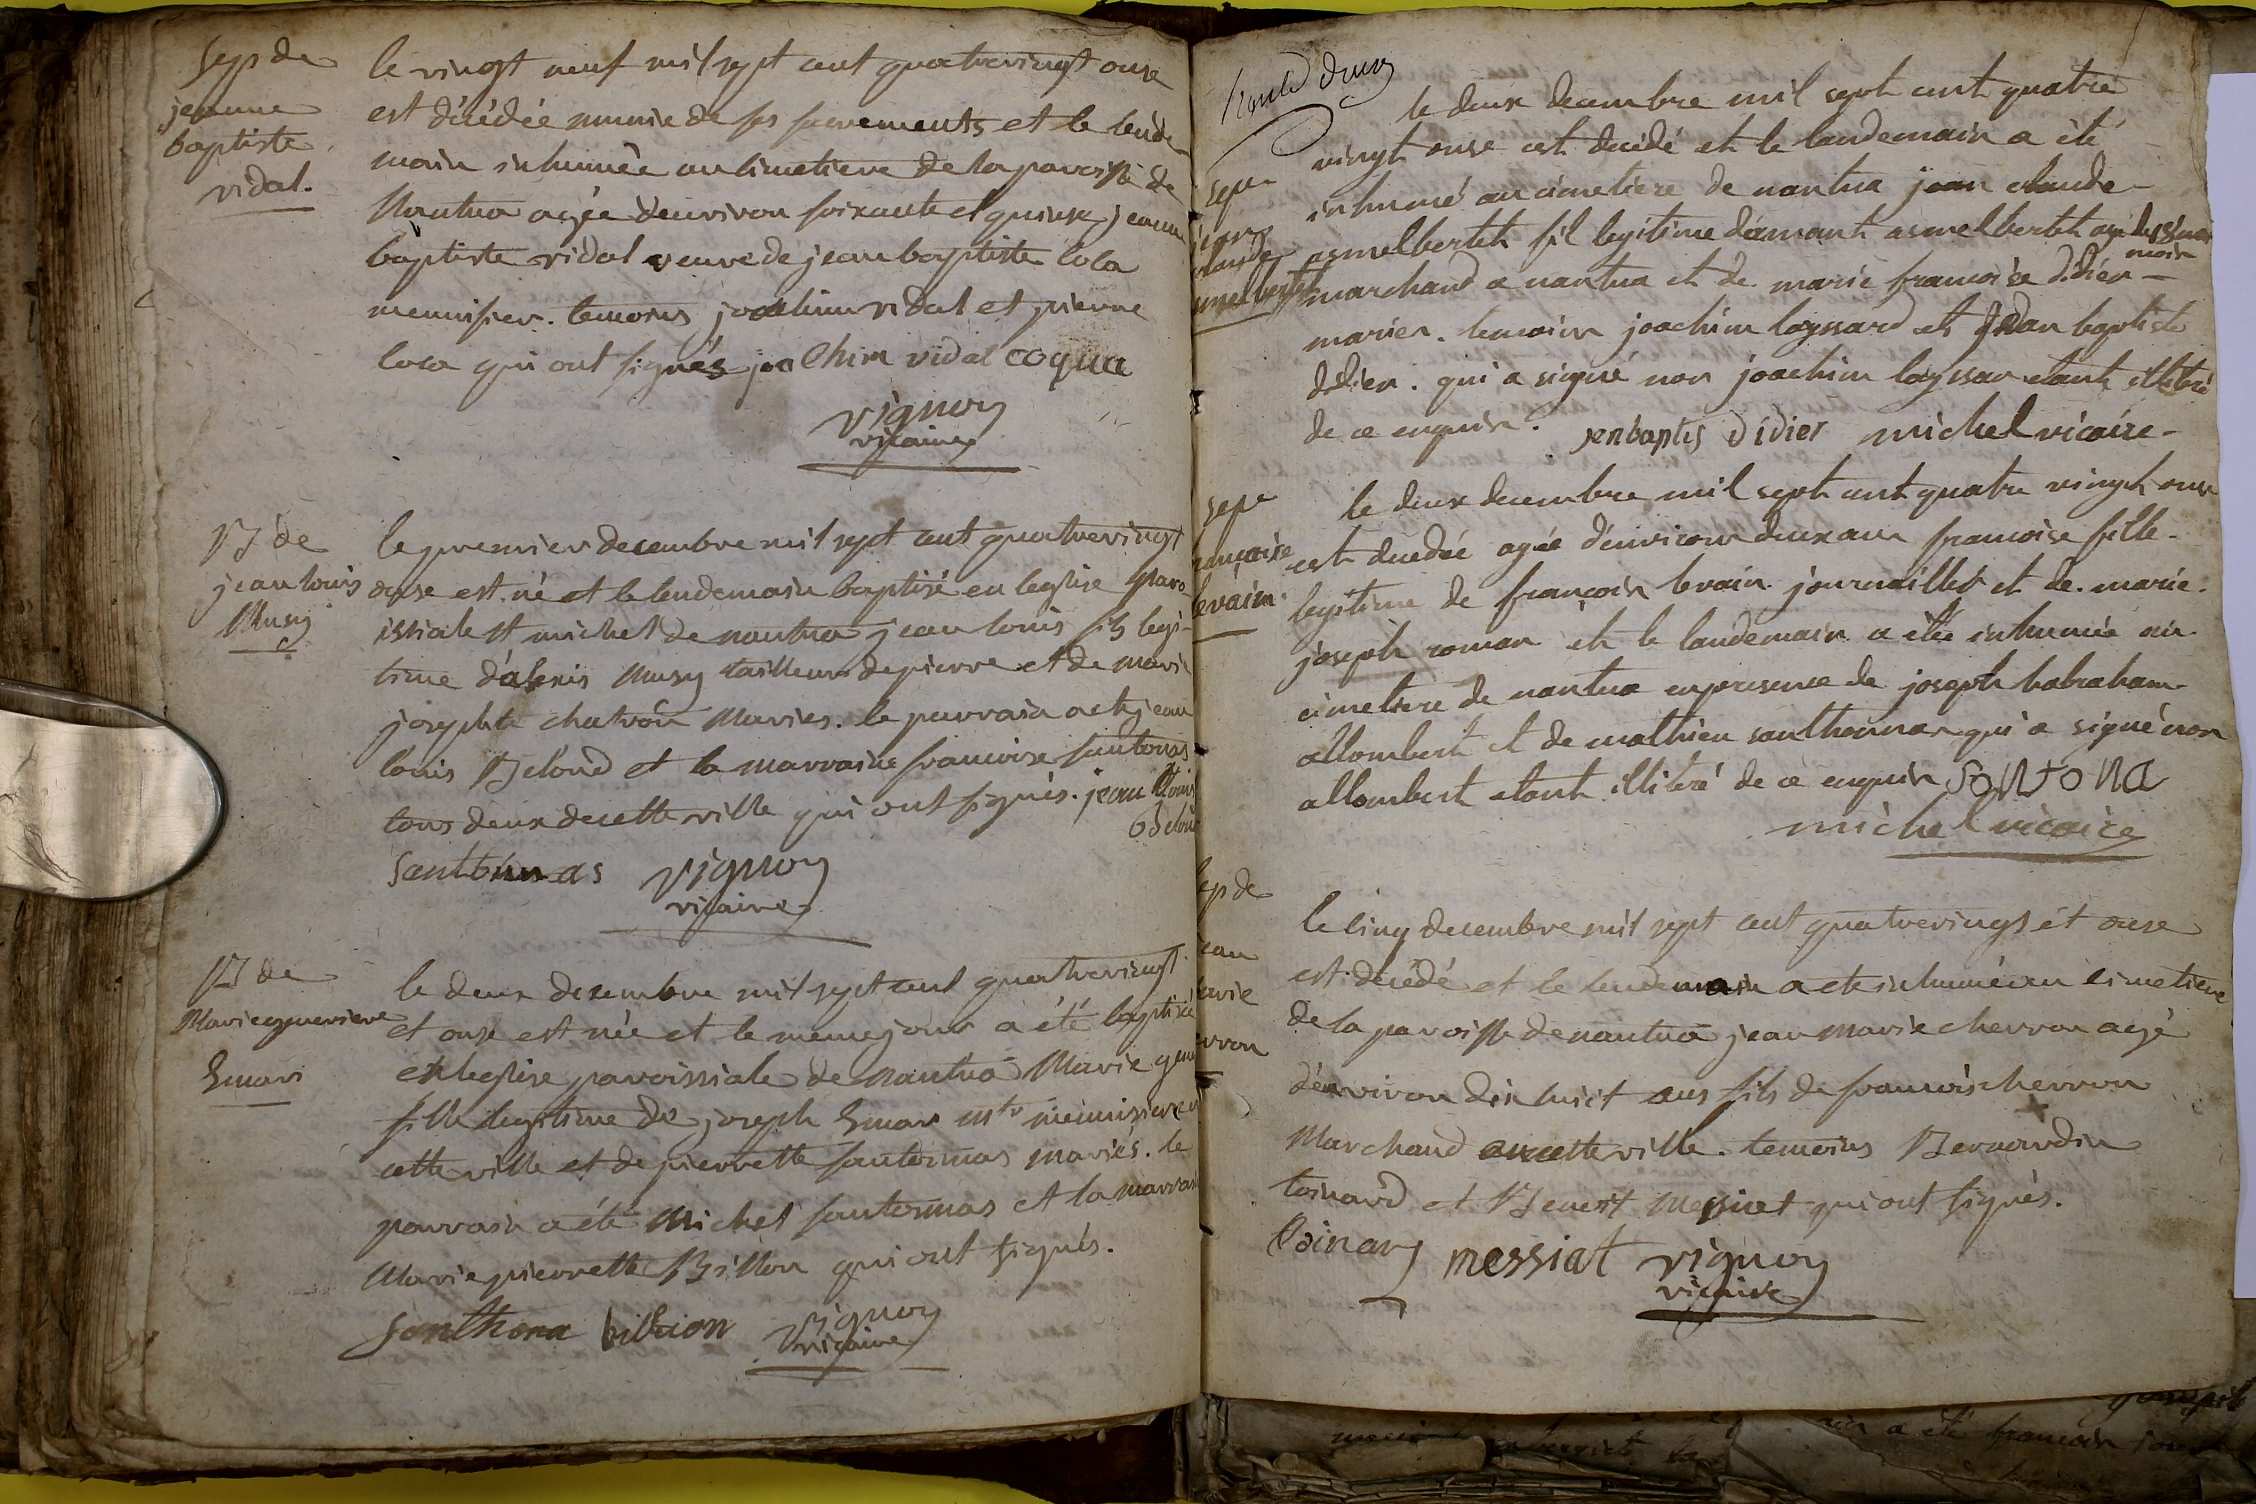 Sep de
jeanne
baptiste
vidal.
le vingt neuf mil sept cent quatrevingt onse
est décédée munie de ses sacrements et le lende
main inhumée au cimetiere de la paroisse de
Nantua agée d'environ soixante et quinse jeanne
baptiste vidal veuve de jean baptiste coca
menuisier. temoins joachim vidal et pierre
coca qui ont signés joachim vidal coqua
vignon
vicaire
B de
jean louis
Musy
le premier decembre mil sept cent quatrevingt
onse est né et le lendemain baptisé en leglise paro
issiale st michel de nantua jean louis fils legi
time d'alexis Musy tailleur de pierre et de marie
josephte chatrôn Maries. le parrain a eté jean
louis Beloud et la marraine francoise santonas
tous deux de cette ville qui ont signés. jean louis
beloud
santonas vignon
vicaire
B de
Marie genevieve
Emari
le deux desembre mil sept cent quatrevingt
et onse est née et le meme jour a été baptisée
en leglise paroissiale de nantua Marie gene
fille legitime de joseph Emari mtr menuisier en
cette ville et de pierrette santonnas mariés. le
parrain a été Michel santonnas et la marrai
Marie pierrette Billion qui ont signés.
santhona billion vignon
vicaire
sepe
jean
claude
asmelbertet
le deux decembre mil sept cent quatre
vingt onse est decidé et le landemain a été
inhumé au cimetiere de nantua jean claude
asmelbertet fil legitime d'amant asmelbertet agé de
mois
marchand a nantua et de marie francoise didier
marier. temoins joachim layssard et jean baptiste
didier. qui a signé non joachim layssar etant illitéré
de ce enquis. jenbaptis didier michel vicaire
sepe
francoise
levrain.
le deux decembre mil sept cent quatre vingt onse
est decedée agée d'environ deux ans francoise fille
legitime de francois levrain journaillier et de marie
joseph roman et le landemain a etée inhumée au
cimetiere de nantua en presense de joseph habraham
allombert et de mathieu santhonnar qui a signé non
allombert etant illitéré de ce enquis SONTONA
michel vicaire
sep de
jean
marie
chervon
le cinq decembre mil sept cent quatrevingt et onse
est décédé et le lendemain a eté inhumé au cimetiere
de la paroisse de nantua jean marie chervon agé
d'environ dix huit ans fils de francois chervon
Marchand en cette ville. temoins Bernardin
toinard et Benoit Messiat qui ont signés.
toinard messiat vignon
vicaire